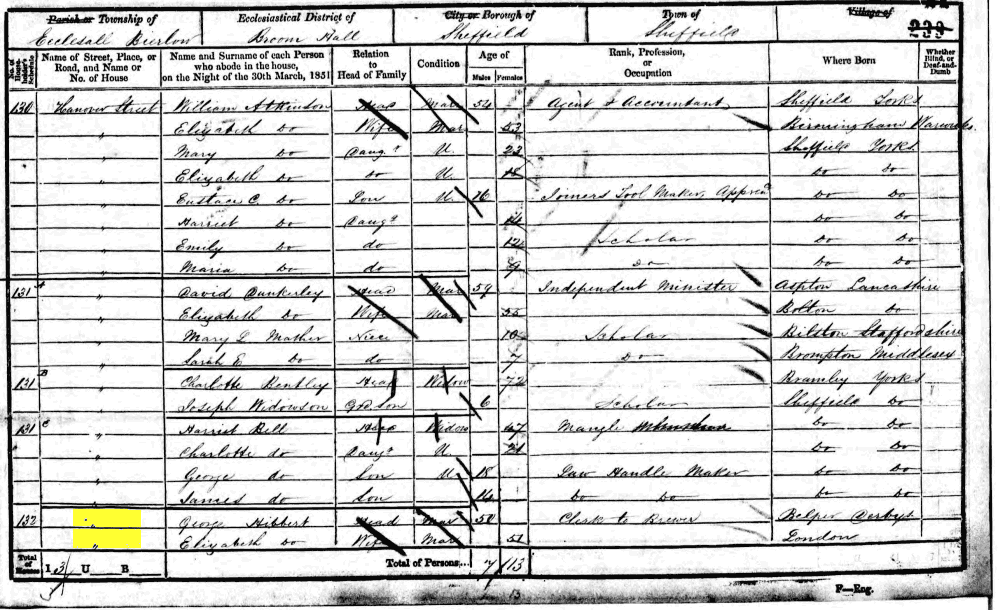 Parish or Township of Ecclesiastical District of City or Borough of Town of Village of
Ecclesall Bierlow Broom Hall Sheffield Sheffield 239
No. of House-holder's Schedule Name of Street, Place, or Road, and Name or No. of House Name and Surname of each Person who abode in the house, on the Night of the 30th March, 1851 Relation to Head of Family Condition Age of Males Females Rank, Profession, or Occupation Where Born Whether Blind, or Deaf-and-Dumb
130 Hanover Street William Atkinson Head Mar 54 Agent & Accountant Sheffield Yorks
" Elizabeth Do Wife Mar 53 Birmingham Warwicks
" Mary Do Daugr U 23 Sheffield Yorks
" Elizabeth Do do U Do Do
" Eustace C. Do Son U 16 Joiners Tool Maker, Appren Do Do
" Harriet Do Daugr 14 Do Do
" Emily Do do 12 Scholar Do Do
" Maria Do do 9 Do Do Do
131 A " David Dunkerley Head Mar 59 Independent Minister Ashton Lancashire
" Elizabeth Do Wife Mar 55 Bolton Do
" Mary L Mather Niece 10 Scholar Bilston Staffordshire
" Sarah E Do do 7 Do Brompton Middlesex
131 B " Charlotte Bentley Head Widow 72 Bramley Yorks
" Joseph Widowson Grdson 6 Scholar Sheffield Do
131 C " Harriet Bell Head Widow 47 Mangle Do Do
" Charlotte do Daugr U 21 Do Do
" George do Son U 18 Saw Handle Maker Do Do
" James do Son 14 Do Do Do Do
132 " George Hibbert Head Mar 58 Clerk to Brewer Belper Derbys
" Elizabeth Do Wife Mar 51 London
Total of Houses I 3 U B Total of Persons... 7 13
F—Eng.